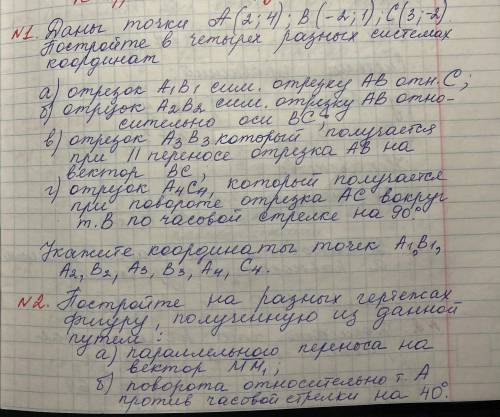 №1. Даны точки A(2;4); B(-2;1); C(3;-2).
Постройте в четырех разных системах
координат
а) отрезок A1B1 сим. отрезку AB отн. C;
б) отрезок A2B2 сим. отрезку AB отно-
сительно оси BC;
в) отрезок A3B3 который получается
при II переносе отрезка AB на
вектор BC;
г) отрезок A4C4, который получается
при повороте отрезка AC вокруг
т. B по часовой стрелке на 90°.
Укажите координаты точек A1, B1,
A2, B2, A3, B3, A4, C4.
№2. Постройте на разных чертежах
фигуру, полученную из данной
путем:
а) параллельного переноса на
вектор MM1,
б) поворота относительно т. A
против часовой стрелки на 40°.